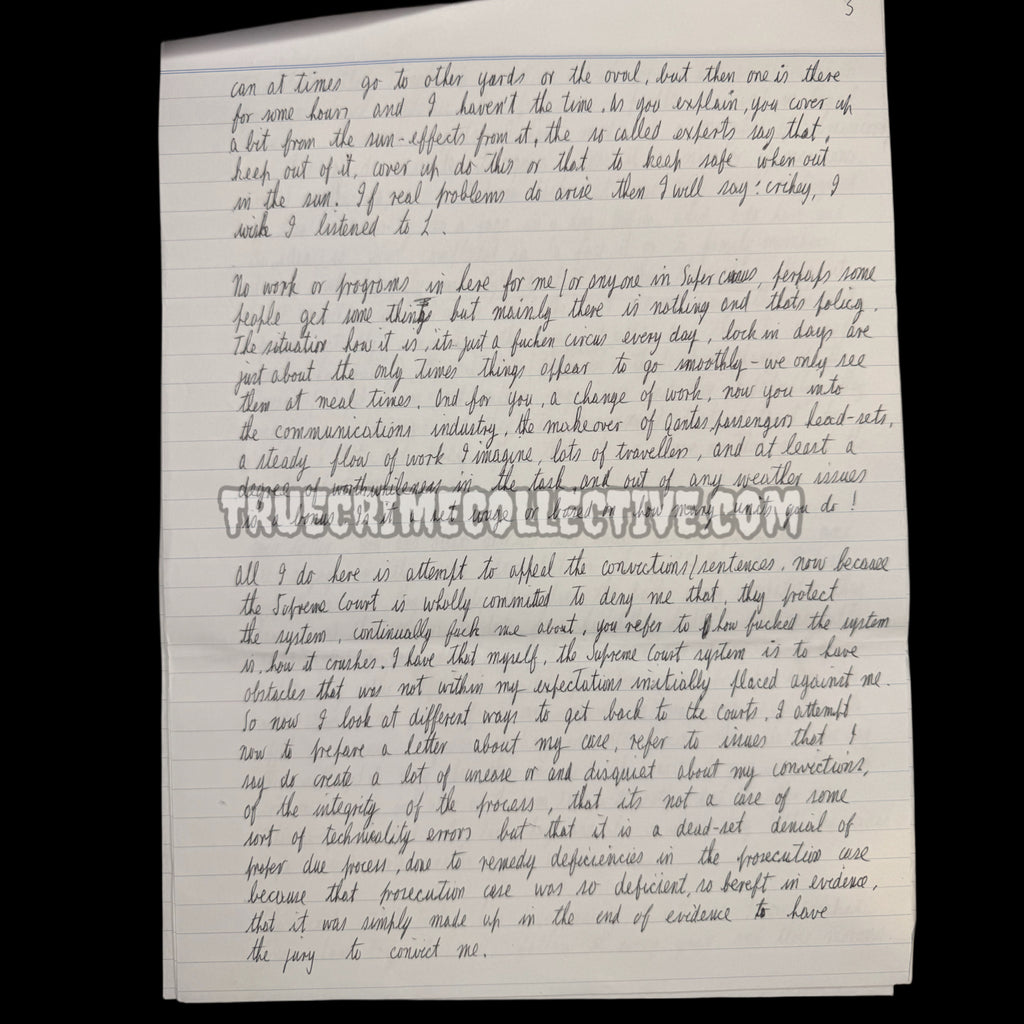 3
can at times go to other yards or the oval, but then one is there
for some hours, and I haven't the time. As you explain, you cover up
a bit from the sun-effects from it, the so called experts say that,
keep out of it, cover up do this or that to keep safe when out
in the sun. If real problems do arise then I will say: crikey, I
wish I listened to L.
No work or programs in here for me/or anyone in Super , perhaps some
people get some things but mainly there is nothing and thats policy.
The situation how it is, its just a fucken circus every day, lock in days are
just about the only times things appear to go smoothly - we only see
them at meal times. And for you, a change of work, now you into
the communications industry, the makeover of Qantas passengers head-sets,
a steady flow of work I imagine, lots of travellers, and at least a
degree of worthwhileness in the task, and out of any weather issues
TRUECRIMECOLLECTIVE.COM
is a bonus. Is it a set wage or based on how many units you do!
All I do here is attempt to appeal the convictions/sentences, now because
the Supreme Court is wholly committed to deny me that, they protect
the system, continually fuck me about, you refer to how fucked the system
is, how it crushes. I have that myself, the Supreme Court system is to have
obstacles that was not within my expectations initially placed against me.
So now I look at different ways to get back to the Courts. I attempt
now to prepare a letter about my case, refer to issues that I
say do create a lot of unease or and disquiet about my convictions,
of the integrity of the process, that its not a case of some
sort of technicality errors but that it is a dead-set denial of
proper due process, done to remedy deficiencies in the prosecution case
because that prosecution case was so deficient, so bereft in evidence,
that it was simply made up in the end of evidence to have
the jury to convict me.